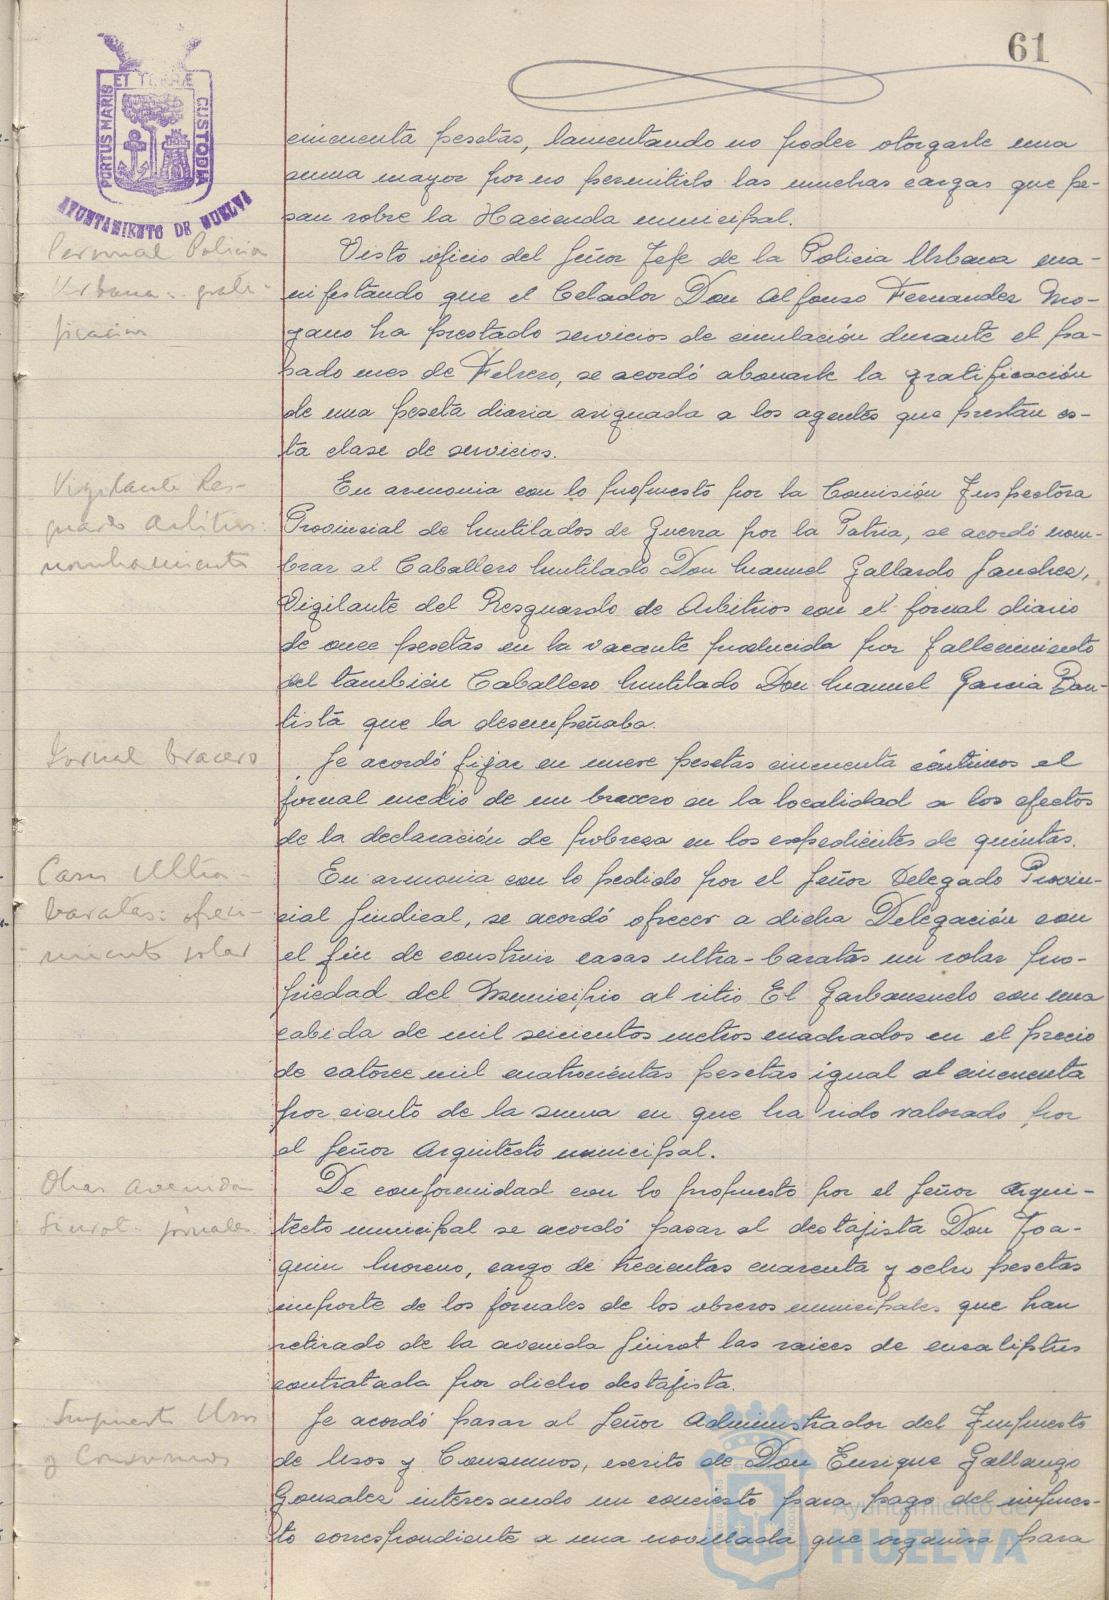 61
PORTUS MARIS ET TERRAE CUSTODIA
AYUNTAMIENTO DE HUELVA
cincuenta pesetas, lamentando no poder otorgarle una
suma mayor por no permitirlo las muchas cargas que pe-
san sobre la Hacienda municipal.
Personal Policia
Urbana: grati-
ficación
Visto oficio del Señor Jefe de la Policia Urbana ma-
nifestando que el Celador Don Alfonso Fernandez Mo-
yano ha prestado servicios de circulación durante el pa-
sado mes de Febrero, se acordó abonarle la gratificación
de una peseta diaria asignada a los agentes que prestan es-
ta clase de servicios.
Vigilante Res-
guardo Arbitrios:
nombramiento
En armonia con lo propuesto por la Comisión Inspectora
Provincial de Mutilados de Guerra por la Patria, se acordó nom-
brar al Caballero Mutilado Don Manuel Gallardo Sanchez,
Vigilante del Resguardo de Arbitrios con el jornal diario
de once pesetas en la vacante producida por fallecimiento
del también Caballero Mutilado Don Manuel Garcia Bau-
tista que la desempeñaba.
Jornal bracero
Se acordó fijar en nueve pesetas cincuenta céntimos el
jornal medio de un bracero en la localidad a los efectos
de la declaración de pobreza en los expedientes de quintas.
Casas Ultra-
baratas: ofreci-
miento solar
En armonia con lo pedido por el Señor Delegado Provin-
cial Sindical, se acordó ofrecer a dicha Delegación con
el fin de construir casas ultra-baratas un solar pro-
piedad del Municipio al sitio El Garbanzuelo con una
cabida de mil seiscientos metros cuadrados en el precio
de catorce mil cuatrocientas pesetas igual al cincuenta
por ciento de la suma en que ha sido valorado por
el Señor Arquitecto municipal.
Obras avenida
Siurot: jornales
De conformidad con lo propuesto por el Señor Arqui-
tecto municipal se acordó pasar al destajista Don Joa-
quin Moreno, cargo de trecientas cuarenta y ocho pesetas
importe de los jornales de los obreros municipales que han
retirado de la avenida Siurot las raices de eucaliptus
contratada por dicho destajista.
Impuesto Usos
y Consumos
Se acordó pasar al Señor Administrador del Impuesto
de Usos y Consumos, escrito de Don Enrique Gallango
Gonzalez interesando un concierto para pago del impues-
to correspondiente a una novillada que organiza para
Ayuntamiento de
HUELVA